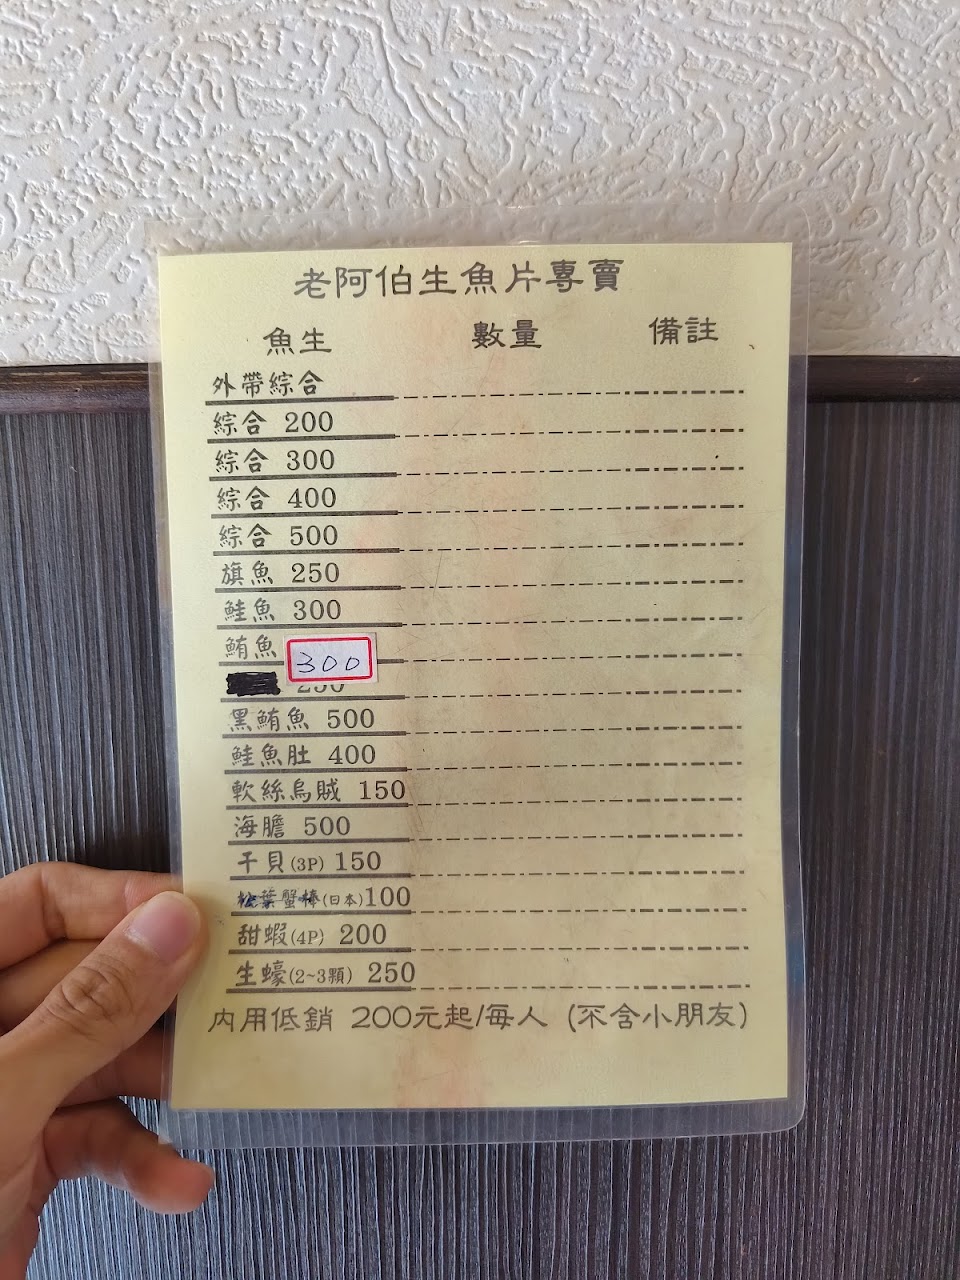 老阿伯生魚片專賣
魚生 數量 備註
外帶綜合
綜合 200
綜合 300
綜合 400
綜合 500
旗魚 250
鮭魚 300
鮪魚 300
250
黑鮪魚 500
鮭魚肚 400
軟絲烏賊 150
海膽 500
干貝(3P) 150
松葉蟹棒(日本)100
甜蝦(4P) 200
生蠔(2~3顆) 250
內用低銷 200元起/每人 (不含小朋友)